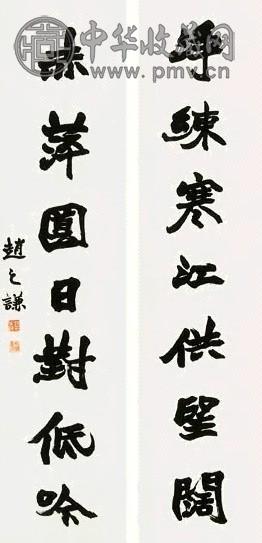 中华收藏网
www.pmv.cn
練寒江供望闊
萍圓日對低吟
趙之謙